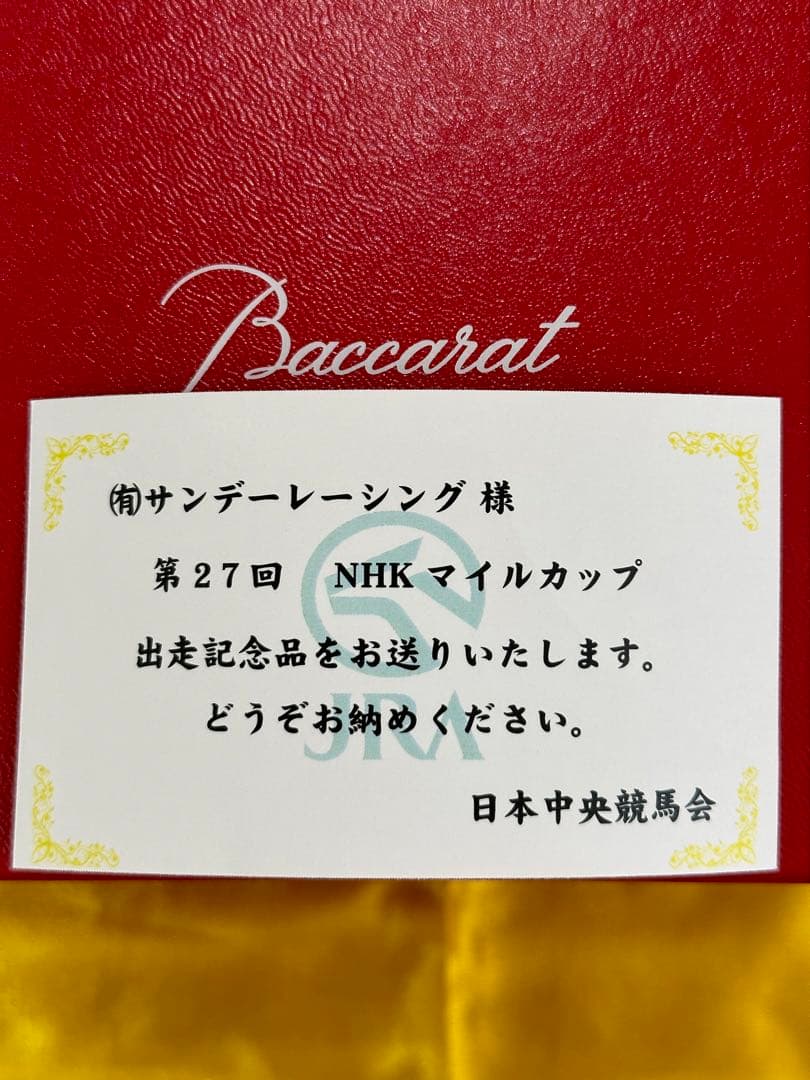 Baccarat
㈲サンデーレーシング 様
第27回　NHKマイルカップ
出走記念品をお送りいたします。
どうぞお納めください。
JRA
日本中央競馬会